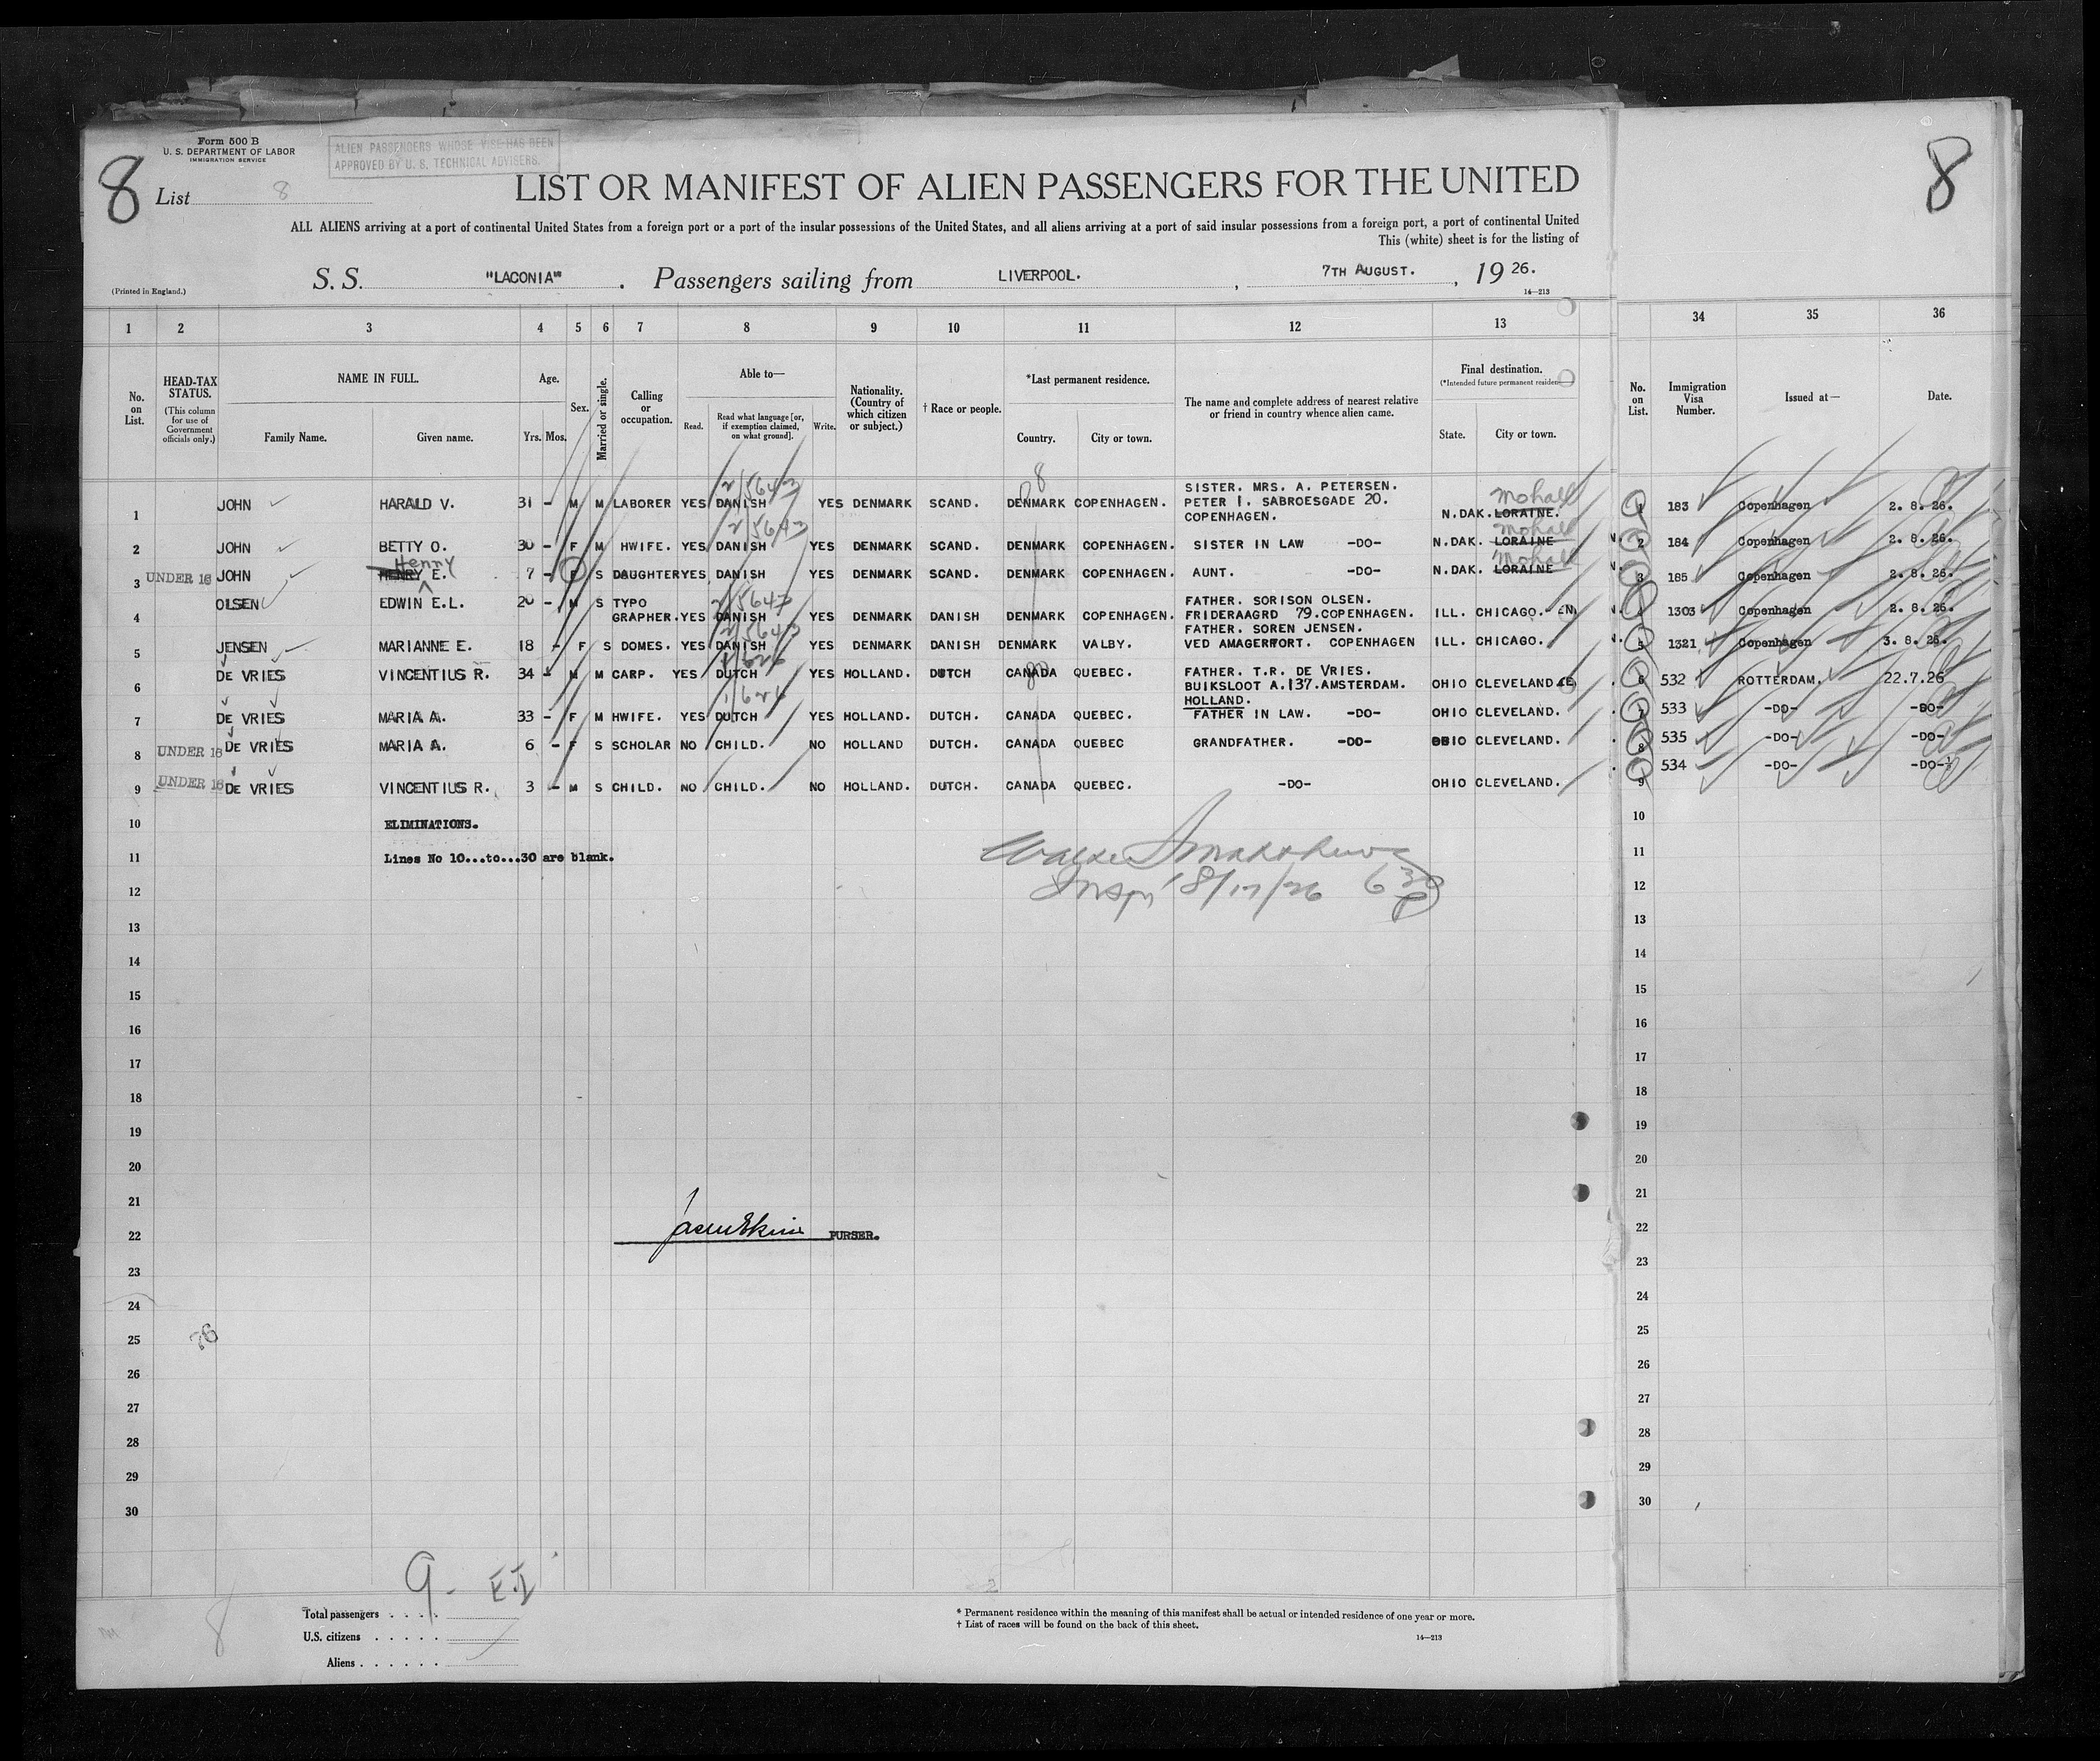 Form 500 B
U. S. DEPARTMENT OF LABOR
IMMIGRATION SERVICE
ALIEN PASSENGERS WHOSE VISE HAS BEEN
APPROVED BY U. S. TECHNICAL ADVISERS.
8
8
List 8
LIST OR MANIFEST OF ALIEN PASSENGERS FOR THE UNITED
ALL ALIENS arriving at a port of continental United States from a foreign port or a port of the insular possessions of the United States, and all aliens arriving at a port of said insular possessions from a foreign port, a port of continental United
This (white) sheet is for the listing of
(Printed in England.)
S. S. "LACONIA" . Passengers sailing from LIVERPOOL. , 7TH AUGUST. , 19 26.
14—213
1 2 3 4 5 6 7 8 9 10 11 12 13 34 35 36
No. on List.
HEAD-TAX STATUS.
(This column for use of Government officials only.)
NAME IN FULL.
Family Name. Given name.
Age.
Yrs. Mos.
Sex.
Married or single.
Calling or occupation.
Able to—
Read. Read what language [or, if exemption claimed, on what ground]. Write.
Nationality. (Country of which citizen or subject.)
† Race or people.
*Last permanent residence.
Country. City or town.
The name and complete address of nearest relative or friend in country whence alien came.
Final destination.
(*Intended future permanent residen
State. City or town.
No. on List.
Immigration Visa Number.
Issued at—
Date.
2/5643
8
SISTER. MRS. A. PETERSEN.
Mohall
1 JOHN HARALD V. 31 - M M LABORER YES DANISH YES DENMARK SCAND. DENMARK COPENHAGEN. PETER I. SABROESGADE 20. N.DAK. LORAINE. 1 183 Copenhagen 2. 8. 26.
COPENHAGEN.
2/5643
Mohall
2 JOHN BETTY O. 30 - F M HWIFE. YES DANISH YES DENMARK SCAND. DENMARK COPENHAGEN. SISTER IN LAW -DO- N.DAK. LORAINE 2 184 Copenhagen 2. 8. 26.
Henry
Mohall
3 UNDER 16 JOHN HENRY E. 7 - F S DAUGHTER YES DANISH YES DENMARK SCAND. DENMARK COPENHAGEN. AUNT. -DO- N.DAK. LORAINE 3 185 Copenhagen 2. 8. 26.
2/5643
FATHER. SORISON OLSEN.
4 OLSEN EDWIN E.L. 20 - M S TYPO
GRAPHER. YES DANISH YES DENMARK DANISH DENMARK COPENHAGEN. FRIDERAAGRD 79.COPENHAGEN. ILL. CHICAGO. 4 1303 Copenhagen 2. 8. 26.
2/5643
FATHER. SOREN JENSEN.
5 JENSEN MARIANNE E. 18 - F S DOMES. YES DANISH YES DENMARK DANISH DENMARK VALBY. VED AMAGERFORT. COPENHAGEN ILL. CHICAGO. 5 1321 Copenhagen 3. 8. 26.
1/626
6 DE VRIES VINCENTIUS R. 34 - M M CARP. YES DUTCH YES HOLLAND. DUTCH CANADA QUEBEC. FATHER. T.R. DE VRIES. OHIO CLEVELAND 6 532 ROTTERDAM. 22.7.26
BUIKSLOOT A.137.AMSTERDAM.
HOLLAND.
1/626
7 DE VRIES MARIA A. 33 - F M HWIFE. YES DUTCH YES HOLLAND. DUTCH. CANADA QUEBEC. FATHER IN LAW. -DO- OHIO CLEVELAND. 7 533 -DO- -DO-
8 UNDER 16 DE VRIES MARIA A. 6 - F S SCHOLAR NO CHILD. NO HOLLAND DUTCH. CANADA QUEBEC GRANDFATHER. -DO- OHIO CLEVELAND. 8 535 -DO- -DO-
9 UNDER 16 DE VRIES VINCENTIUS R. 3 - M S CHILD. NO CHILD. NO HOLLAND. DUTCH. CANADA QUEBEC. -DO- OHIO CLEVELAND. 9 534 -DO- -DO-
10 ELIMINATIONS. 10
11 Lines No 10...to...30 are blank. 11
12 Inspr 8/17/26 6 30 P 12
13 13
14 14
15 15
16 16
17 17
18 18
19 19
20 20
21 21
22 PURSER. 22
23 23
24 24
25 25
26 26
27 27
28 28
29 29
30 30
9 -
8
Total passengers . . . .
U.S. citizens . . . . .
Aliens . . . . . .
* Permanent residence within the meaning of this manifest shall be actual or intended residence of one year or more.
† List of races will be found on the back of this sheet.
14—213